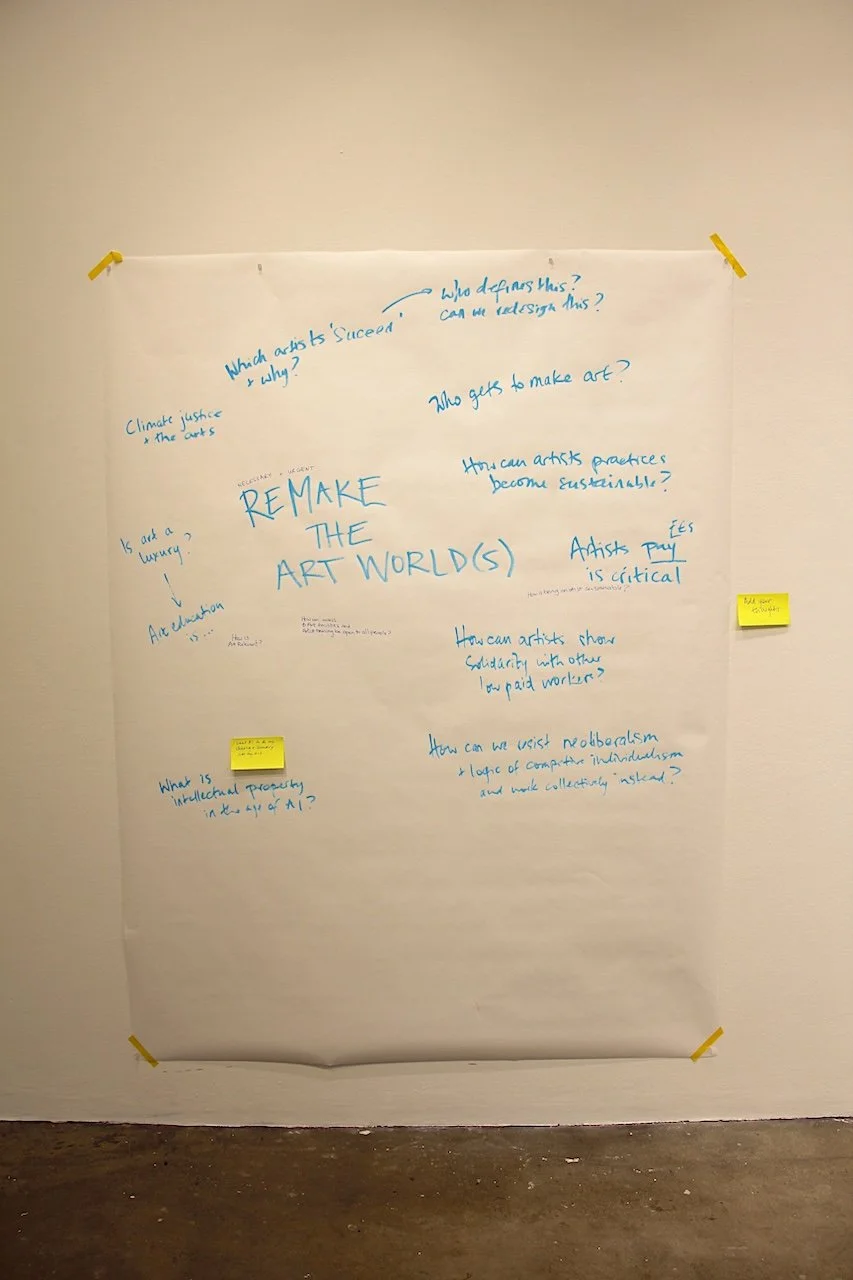 Who defines this?
can we redesign this?
Which artists 'Suceed'
+ why?
Who gets to make art?
Climate justice
+ the arts
How can artists practices
become sustainable?
NECESSARY + URGENT
REMAKE
THE
ART WORLD(S)
£££s
Artists pay
is critical
Is art a
luxury?
Art education
is...
How is
Art Relevant?
How can
and
be open to all people?
How is being an artist sustainable?
Add your
thoughts
How can artists show
solidarity with other
low paid workers?
How can we resist neoliberalism
+ logic of compitive individualism
and work collectively instead?
What is
intellectual property
in the age of AI?